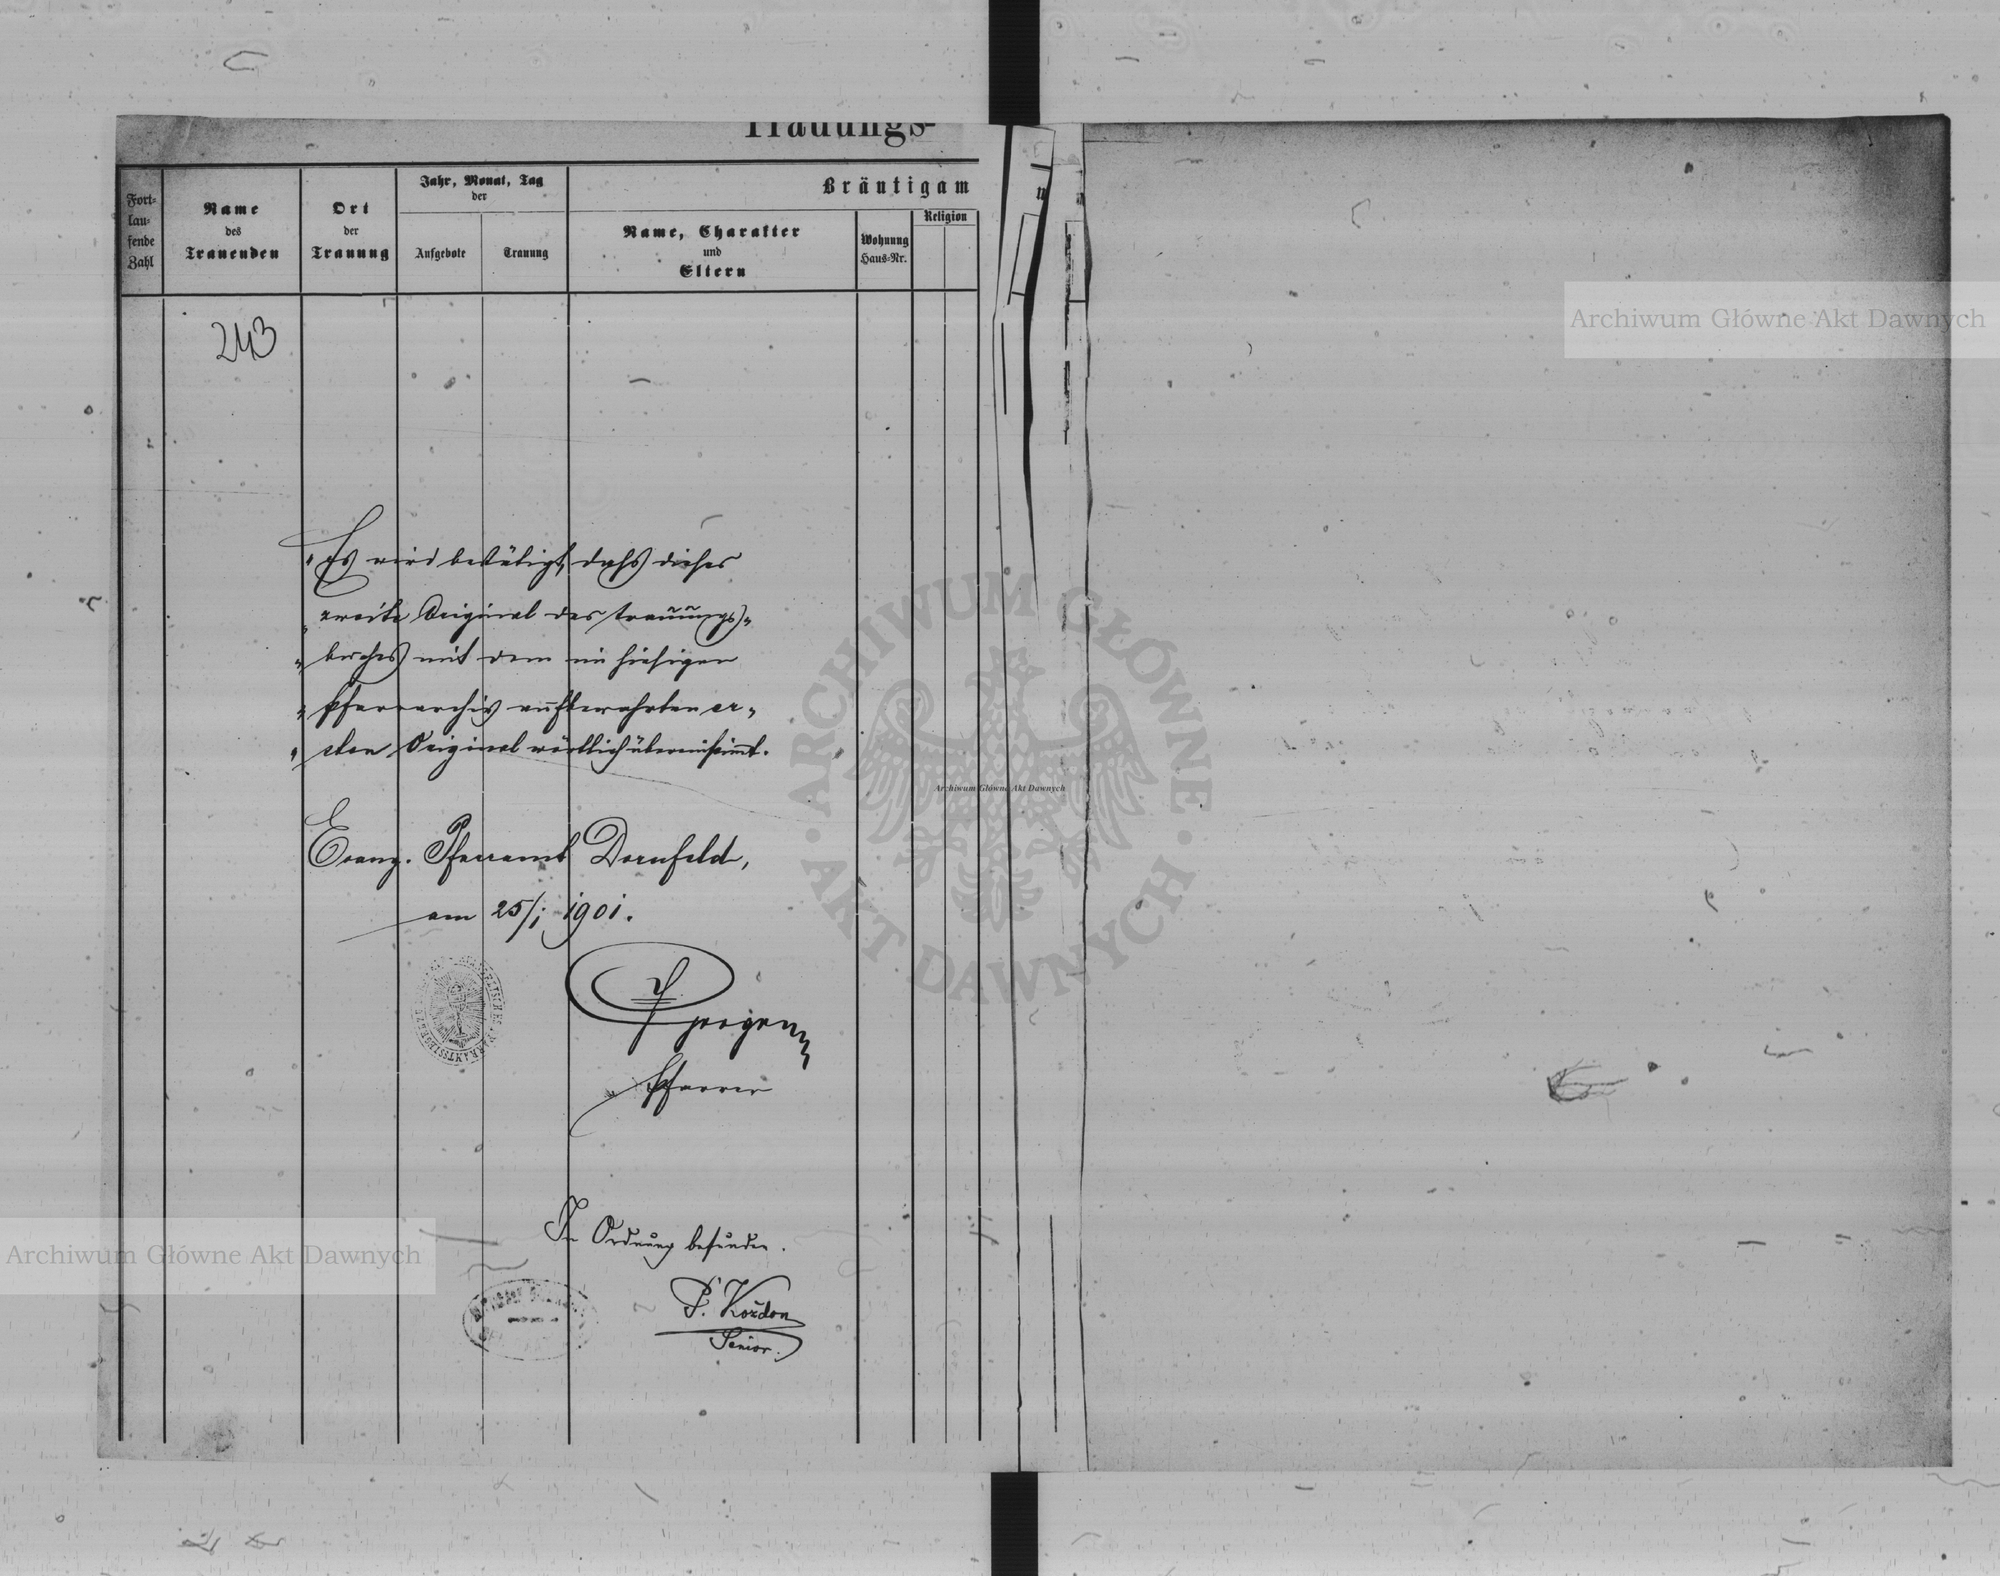 Trauungs-
Fort-
lau-
fende
Zahl
Name
des
Trauenden
Ort
der
Trauung
Jahr, Monat, Tag
der
Aufgebote
Trauung
Bräutigam
Name, Charakter
und
Eltern
Wohnung
Haus-Nr.
Religion
243
Es wird bestätigt, daß dieses
zweite Original des Trauungs-
buches mit dem im hiesigen
Pfarrarchiv aufbewahrten er-
sten Original wörtlich übereinstimmt.
Evang. Pfarramt Dornfeld,
am 25/1 1901.
Pfarrer
In Ordnung befunden.
P. Kożdon
Senior.
Archiwum Główne Akt Dawnych
Archiwum Główne Akt Dawnych
Archiwum Główne Akt Dawnych
ARCHIWUM GŁÓWNE
AKT DAWNYCH